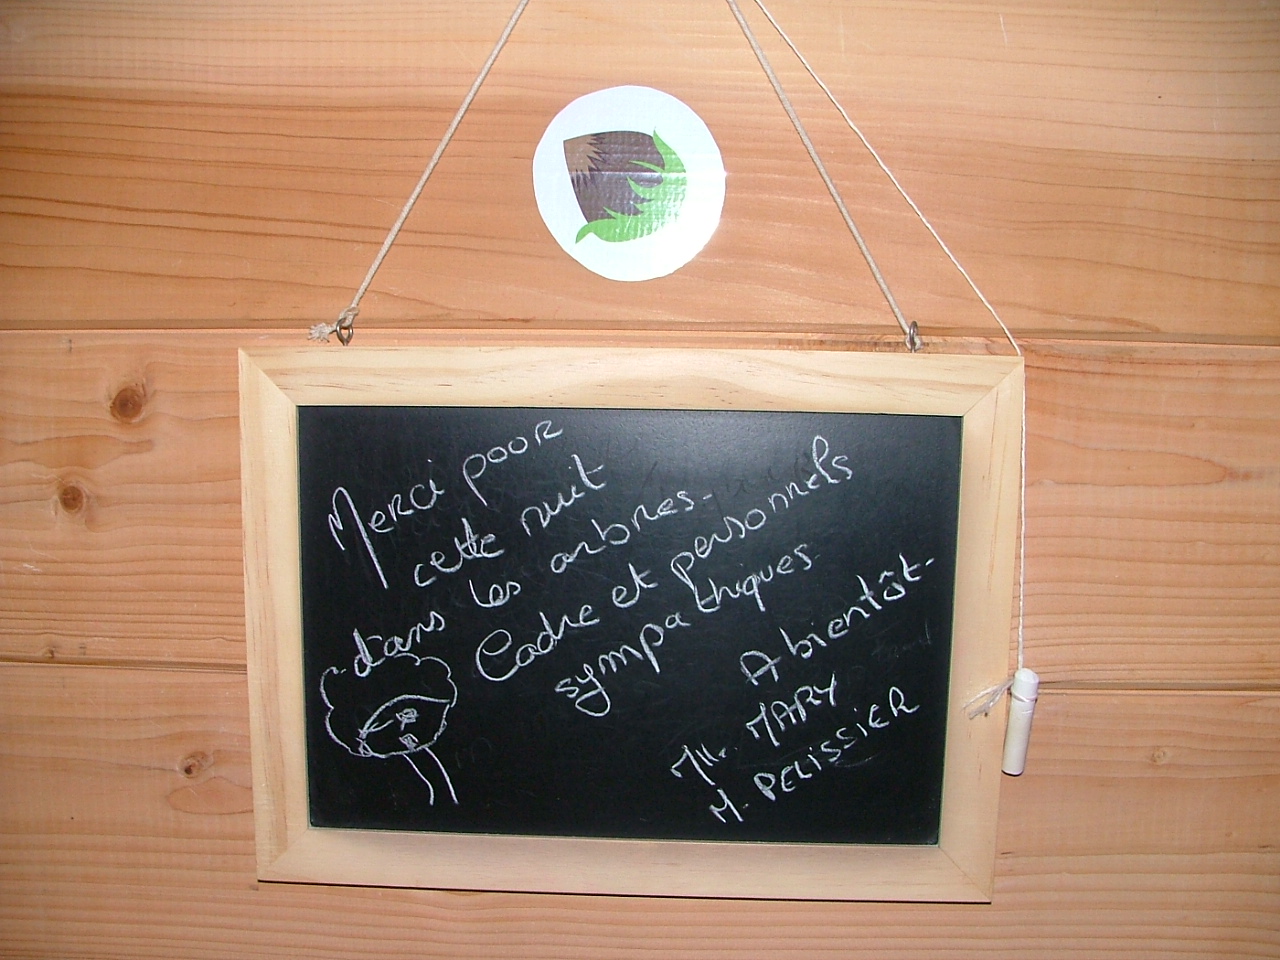 Merci pour
cette nuit
dans les arbres.
Cadre et personnels
sympathiques
A bientôt.
Mlle. MARY
M. PELISSIER